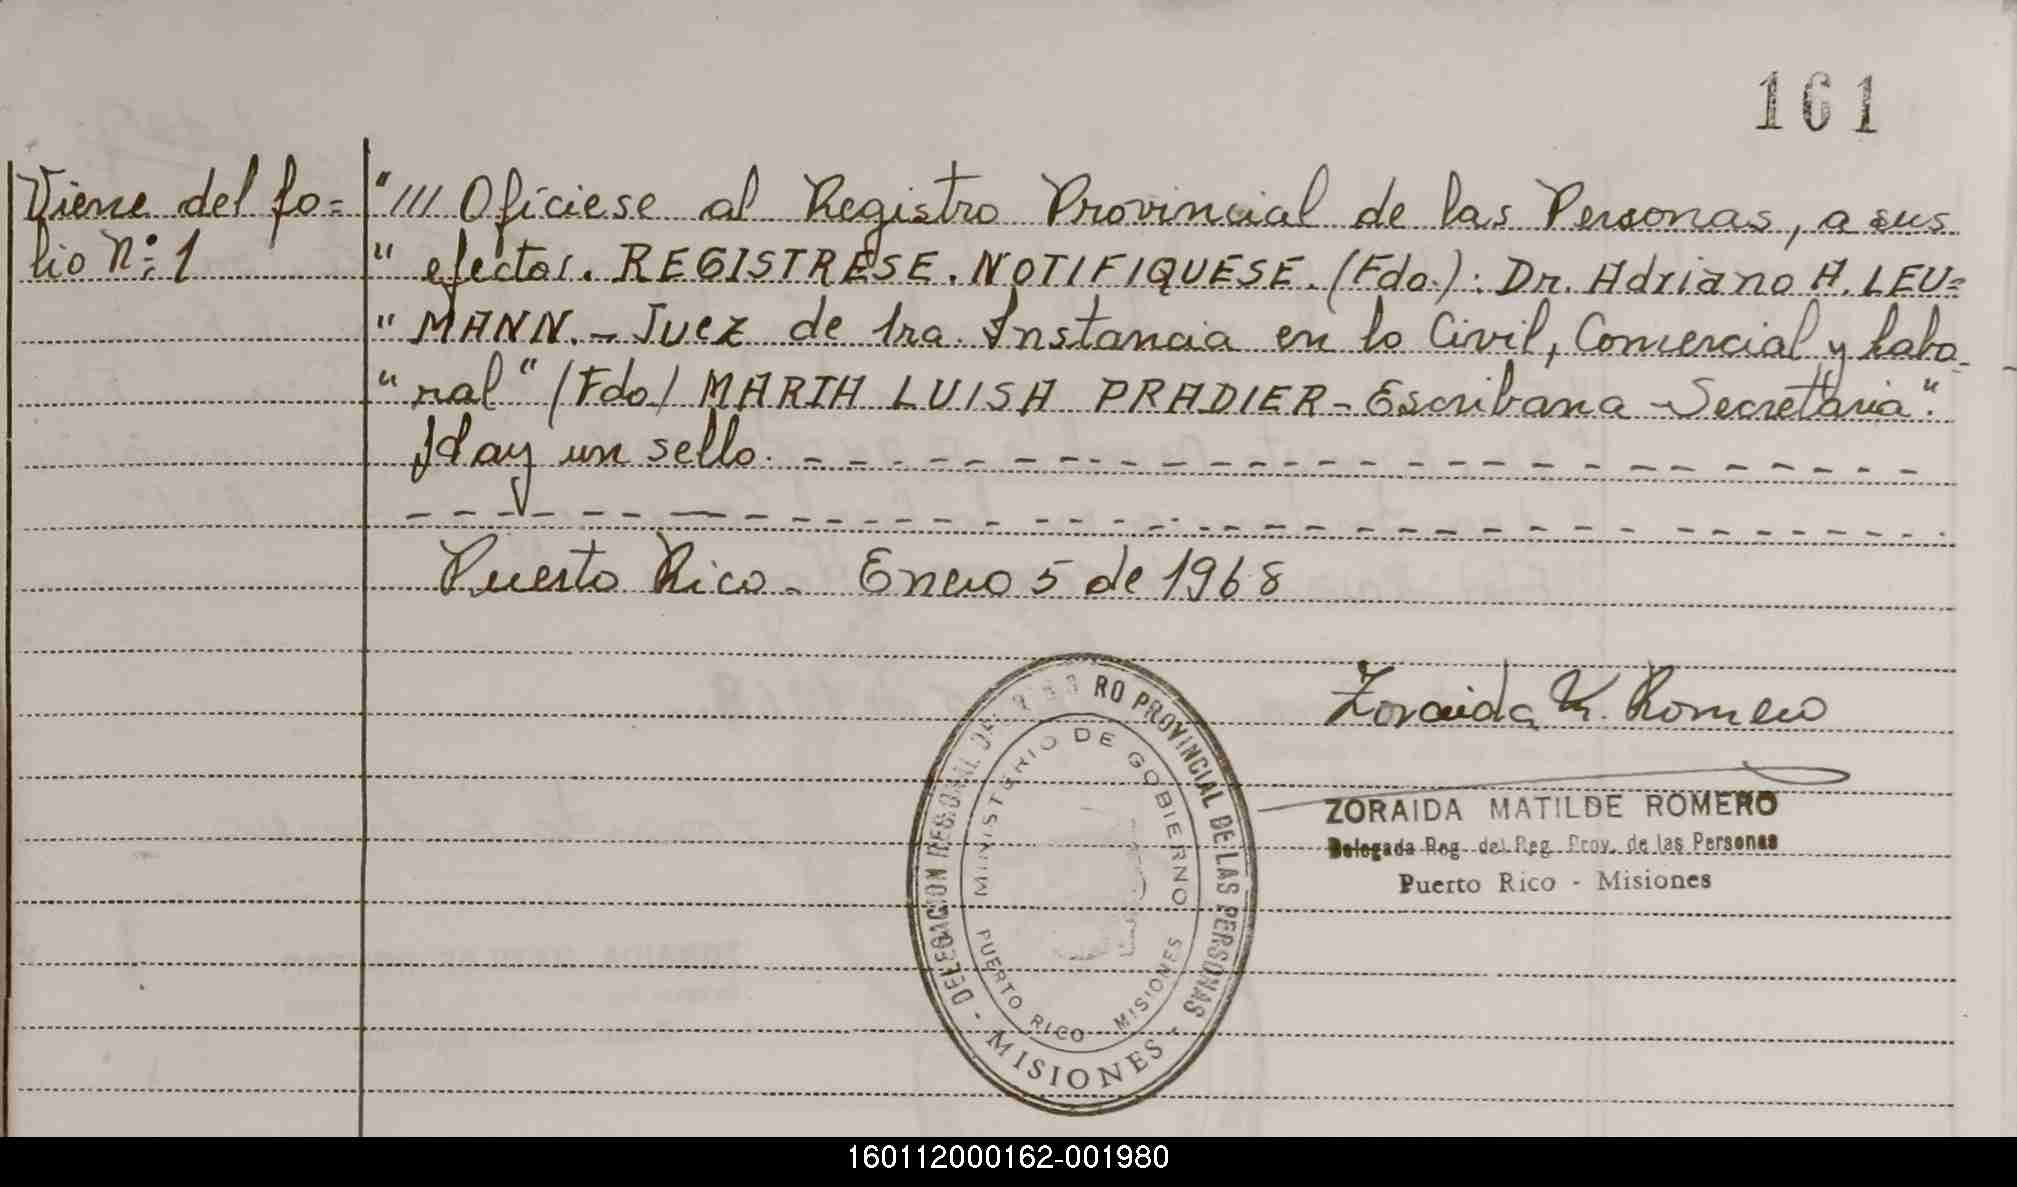 161
Viene del fo=
lio Nº: 1
"III Ofíciese al Registro Provincial de las Personas, a sus
" efectos. REGISTRESE. NOTIFIQUESE. (Fdo.): Dr. Adriano A. LEU=
" MANN. - Juez de 1ra. Instancia en lo Civil, Comercial y Labo-
" ral" (Fdo) MARIA LUISA PRADIER - Escribana - Secretaria".
Hay un sello.
Puerto Rico - Enero 5 de 1968
Zoraida M. Romero
ZORAIDA MATILDE ROMERO
Delegada Reg. del Reg. Prov. de las Personas
Puerto Rico - Misiones
DELEGACION REGIONAL RO PROVINCIAL DE LAS PERSONAS
- MISIONES -
MINISTERIO DE GOBIERNO
PUERTO RICO MISIONES
160112000162-001980